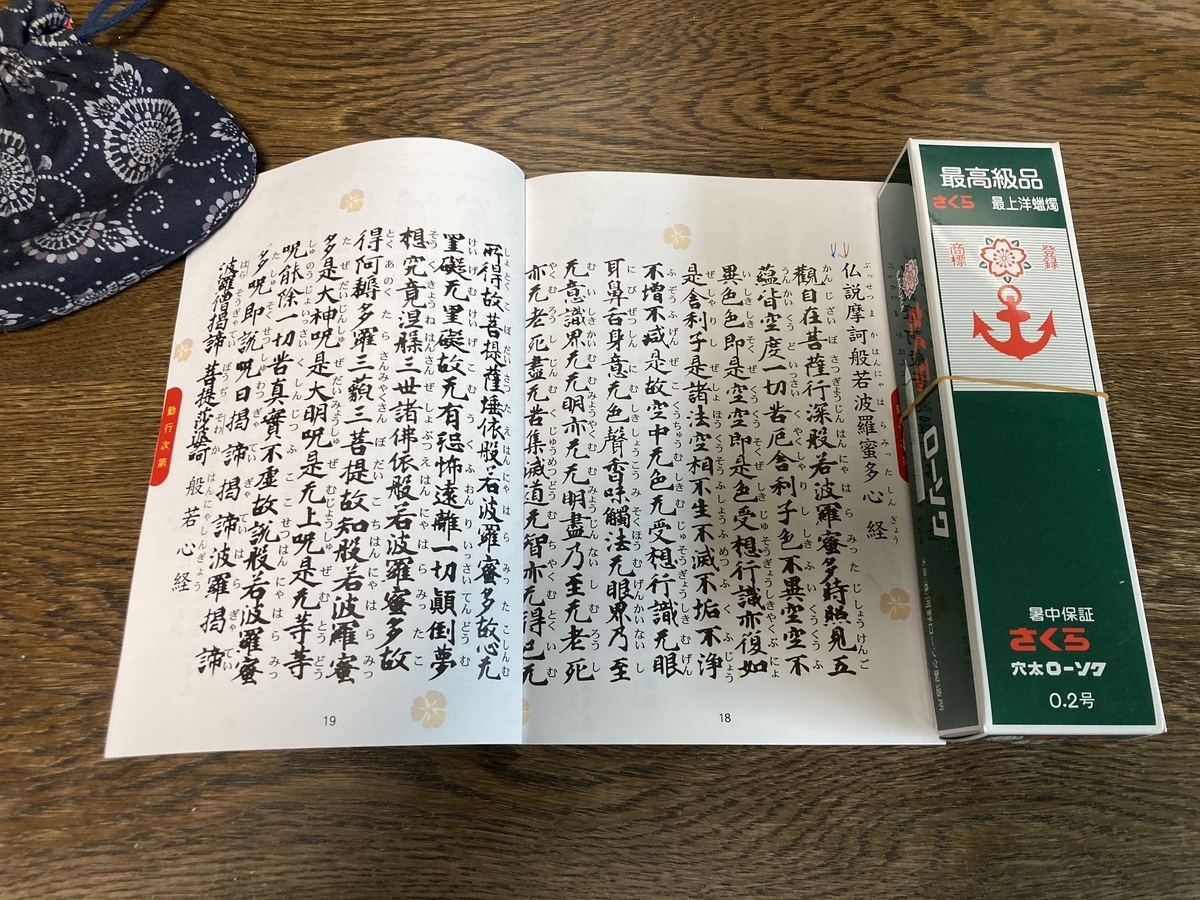 仏説摩訶般若波羅蜜多心経
觀自在菩薩行深般若波羅蜜多時照見五
蘊皆空度一切苦厄舎利子色不異空空不
異色色即是空空即是色受想行識亦復如
是舎利子是諸法空相不生不滅不垢不浄
不増不減是故空中无色无受想行識无眼
耳鼻舌身意无色聲香味觸法无眼界乃至
无意識界无无明亦无无明盡乃至无老死
亦无老死盡无苦集滅道无智亦无得已无
18
所得故菩提薩埵依般若波羅蜜多故心无
罣礙无罣礙故无有恐怖遠離一切顛倒夢
想究竟涅槃三世諸佛依般若波羅蜜多故
得阿耨多羅三藐三菩提故知般若波羅蜜
多是大神呪是大明呪是无上呪是无等等
呪能除一切苦真實不虚故説般若波羅蜜
多呪即説呪曰揭諦揭諦波羅揭諦
波羅僧揭諦 菩提莎婆訶 般若心経
勤行次第
19
最高級品
さくら 最上洋蠟燭
商標 登録
暑中保証
さくら
穴太ローソク
0.2号
ローソク